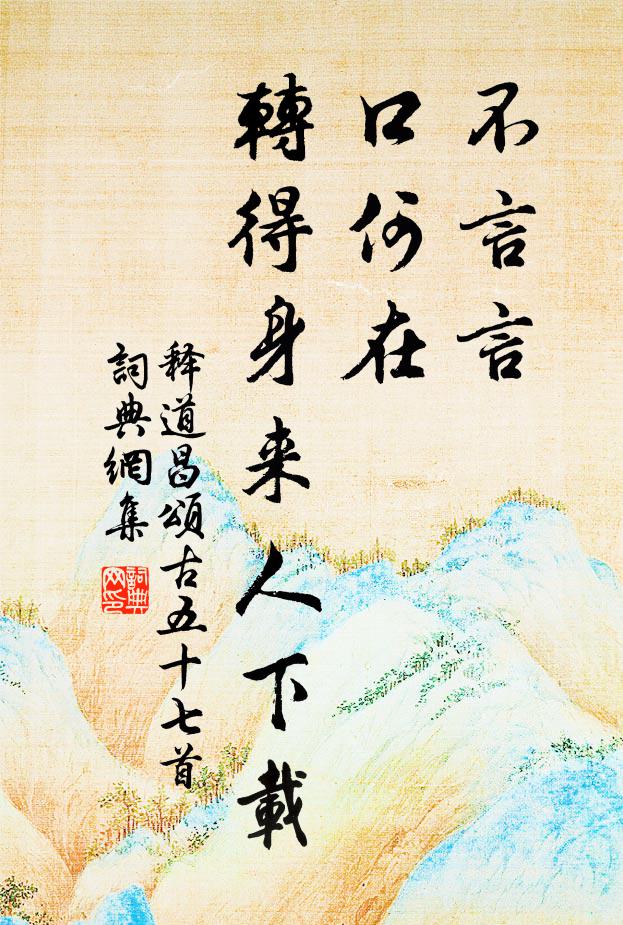 不言言
口何在
轉得身来人下載
释道昌頌古五十七首
詞典網集
詞典
网印